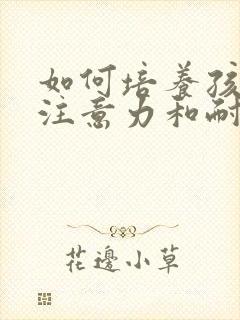 如何培养孩
注意力和耐
花邊小草